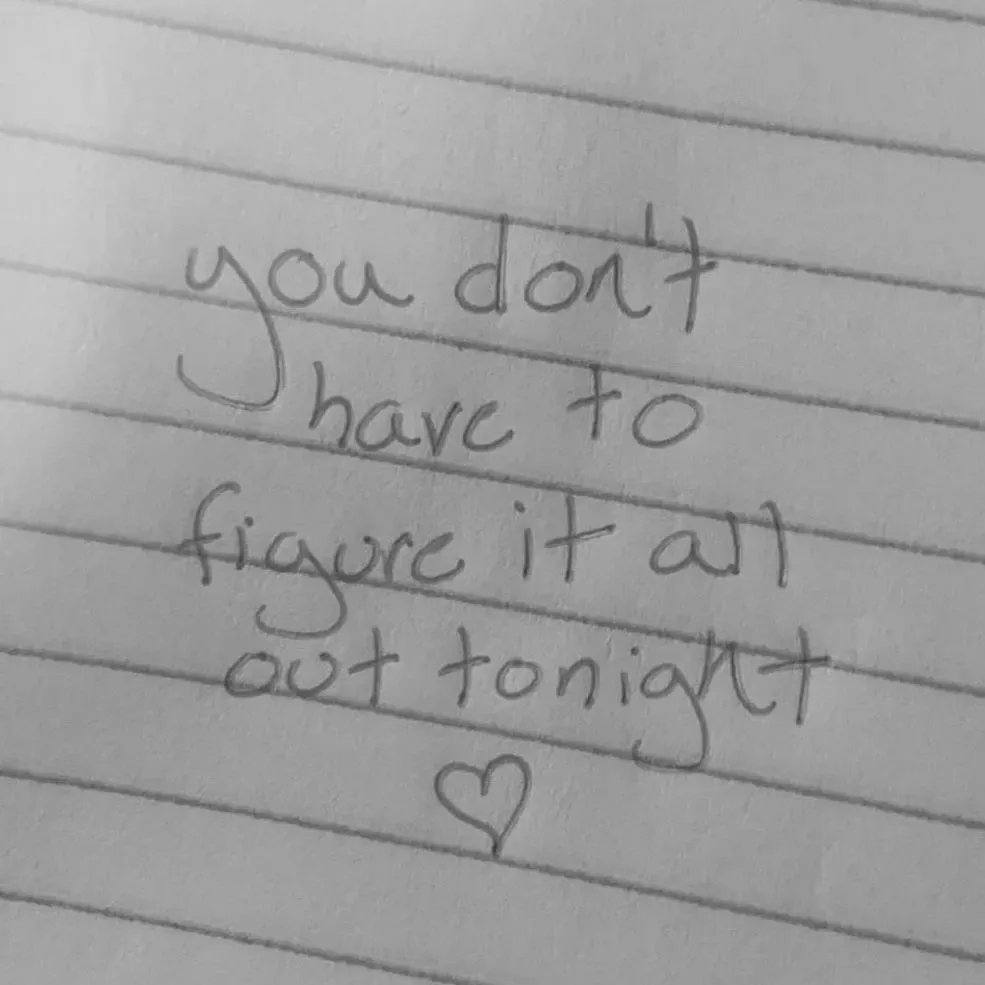 you don't
have to
figure it all
out tonight
♡